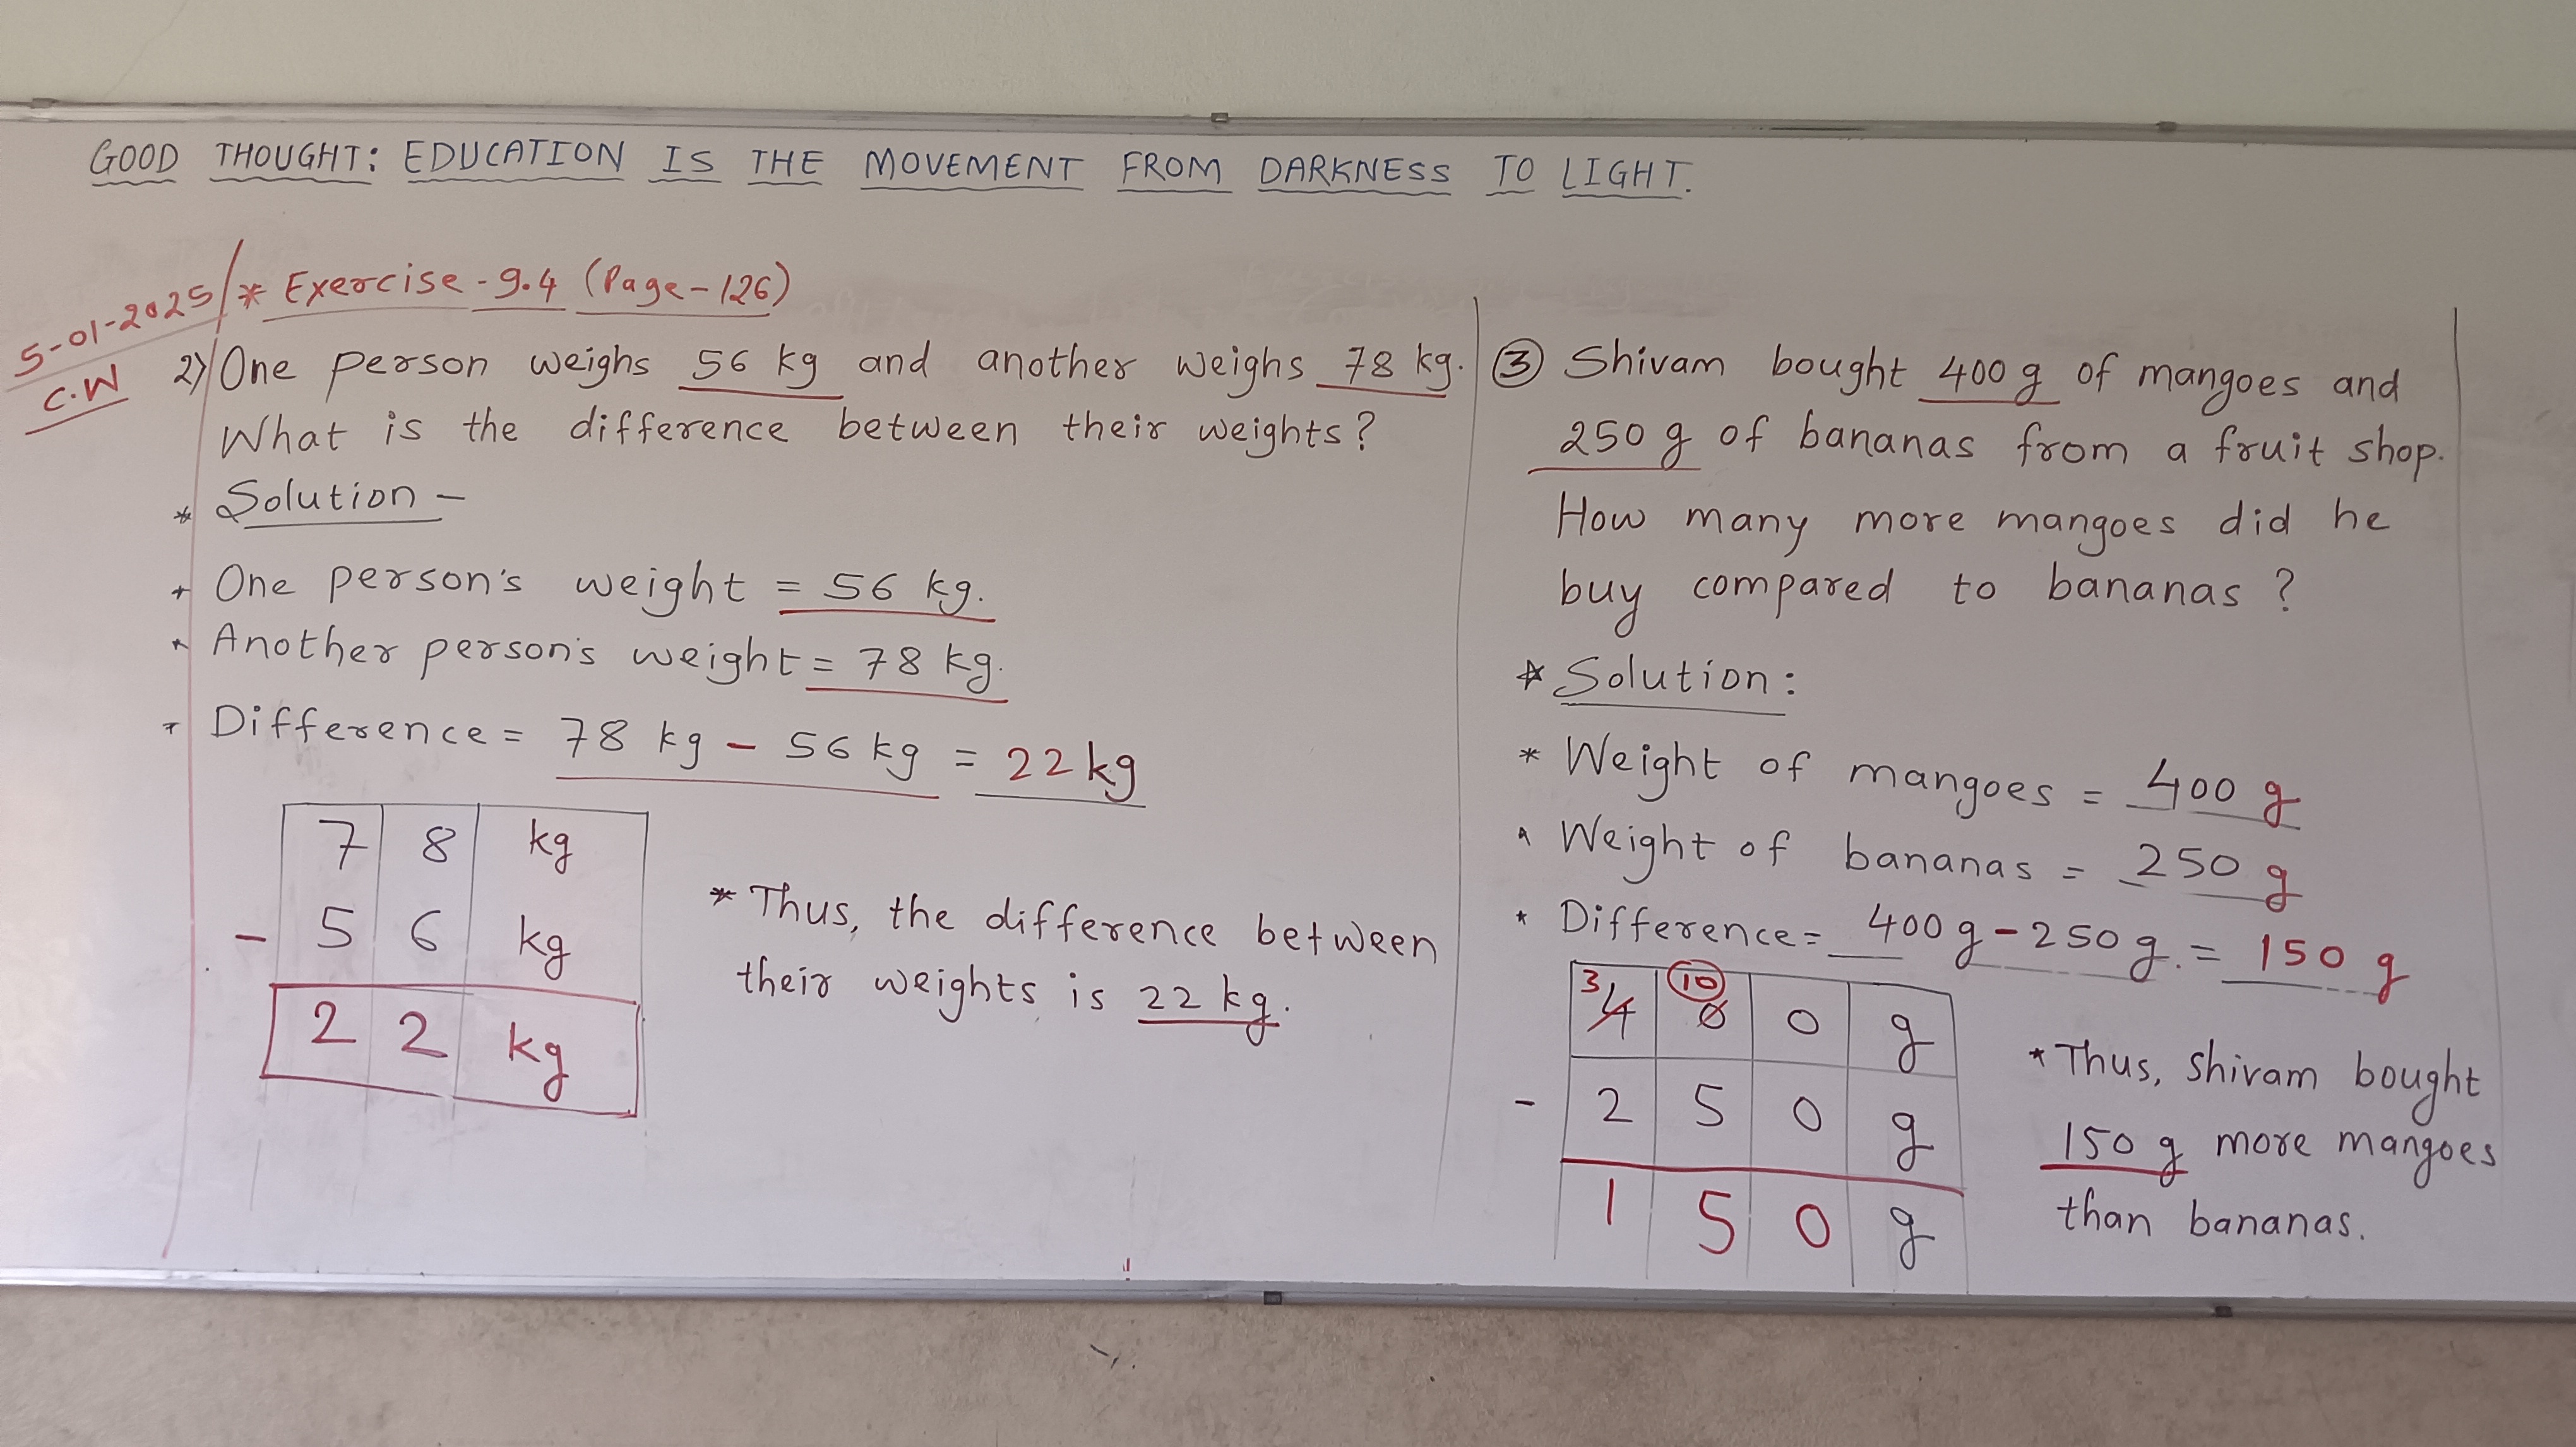 GOOD THOUGHT: EDUCATION IS THE MOVEMENT FROM DARKNESS TO LIGHT.
5-01-2025
C.W
* Exercise-9.4 (Page-126)
2) One person weighs 56 kg and another weighs 78 kg.
What is the difference between their weights?
* Solution -
* One person's weight = 56 kg.
* Another person's weight = 78 kg.
* Difference = 78 kg - 56 kg = 22 kg
7 8 kg
- 5 6 kg
2 2 kg
* Thus, the difference between
their weights is 22 kg.
③ Shivam bought 400 g of mangoes and
250 g of bananas from a fruit shop.
How many more mangoes did he
buy compared to bananas?
* Solution:
* Weight of mangoes = 400 g
* Weight of bananas = 250 g
* Difference = 400 g - 250 g. = 150 g
3 10
4 0 0 g
- 2 5 0 g
1 5 0 g
* Thus, Shivam bought
150 g more mangoes
than bananas.